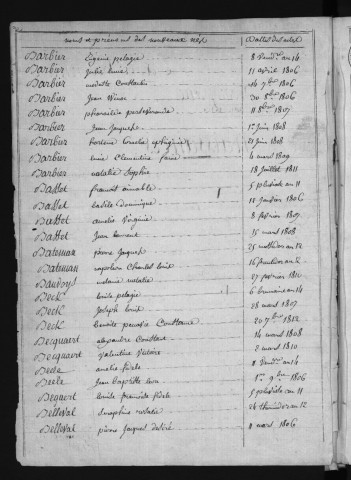 noms et prénoms des nouveaux nés Dates des actes
Barbier Eugénie pelagie 8 Vend.re an 14
Barbier Julie 11 avril 1806
Barbier modeste Constantin 14 7bre 1806
Barbier Jean 30 8bre 1806
Barbier 11 8bre 1807
Barbier Jean Jacques 1er Juin 1808
Barbier hortense 21 Juin 1808
Barbier Clementine 4 mars 1809
Barbier natalie Sophie 18 Juillet 1811
Bassot françois aimable 5 pluviose an 11
Basset basile Dominique 18 Janvier 1806
Basset amelie Virginie 8 fevrier 1807
Basset Jean 15 mars 1808
Bateman pierre Jacques 25 an 12
Bateman napoleon Charles Louis 16 an 12
Baudoys melanie natalie 27 fevrier 1810
Beck Louise pelagie 6 brumaire an 14
Beck Joseph Louis 28 mars 1807
Beck Benoite Constance 20 7bre 1812
Becquaert alexandre Constant 14 mars 1808
Becquaert Valentine Victoire 2 mars 1810
Beele amelie 8 Vend.re an 14
Beele Jean baptiste 1er 9bre 1806
Begaert Louise 5 pluviose an 11
Belleval Seraphine natalie 26 thermidor an 12
Belleval pierre Jacques desiré 8 mars 1806